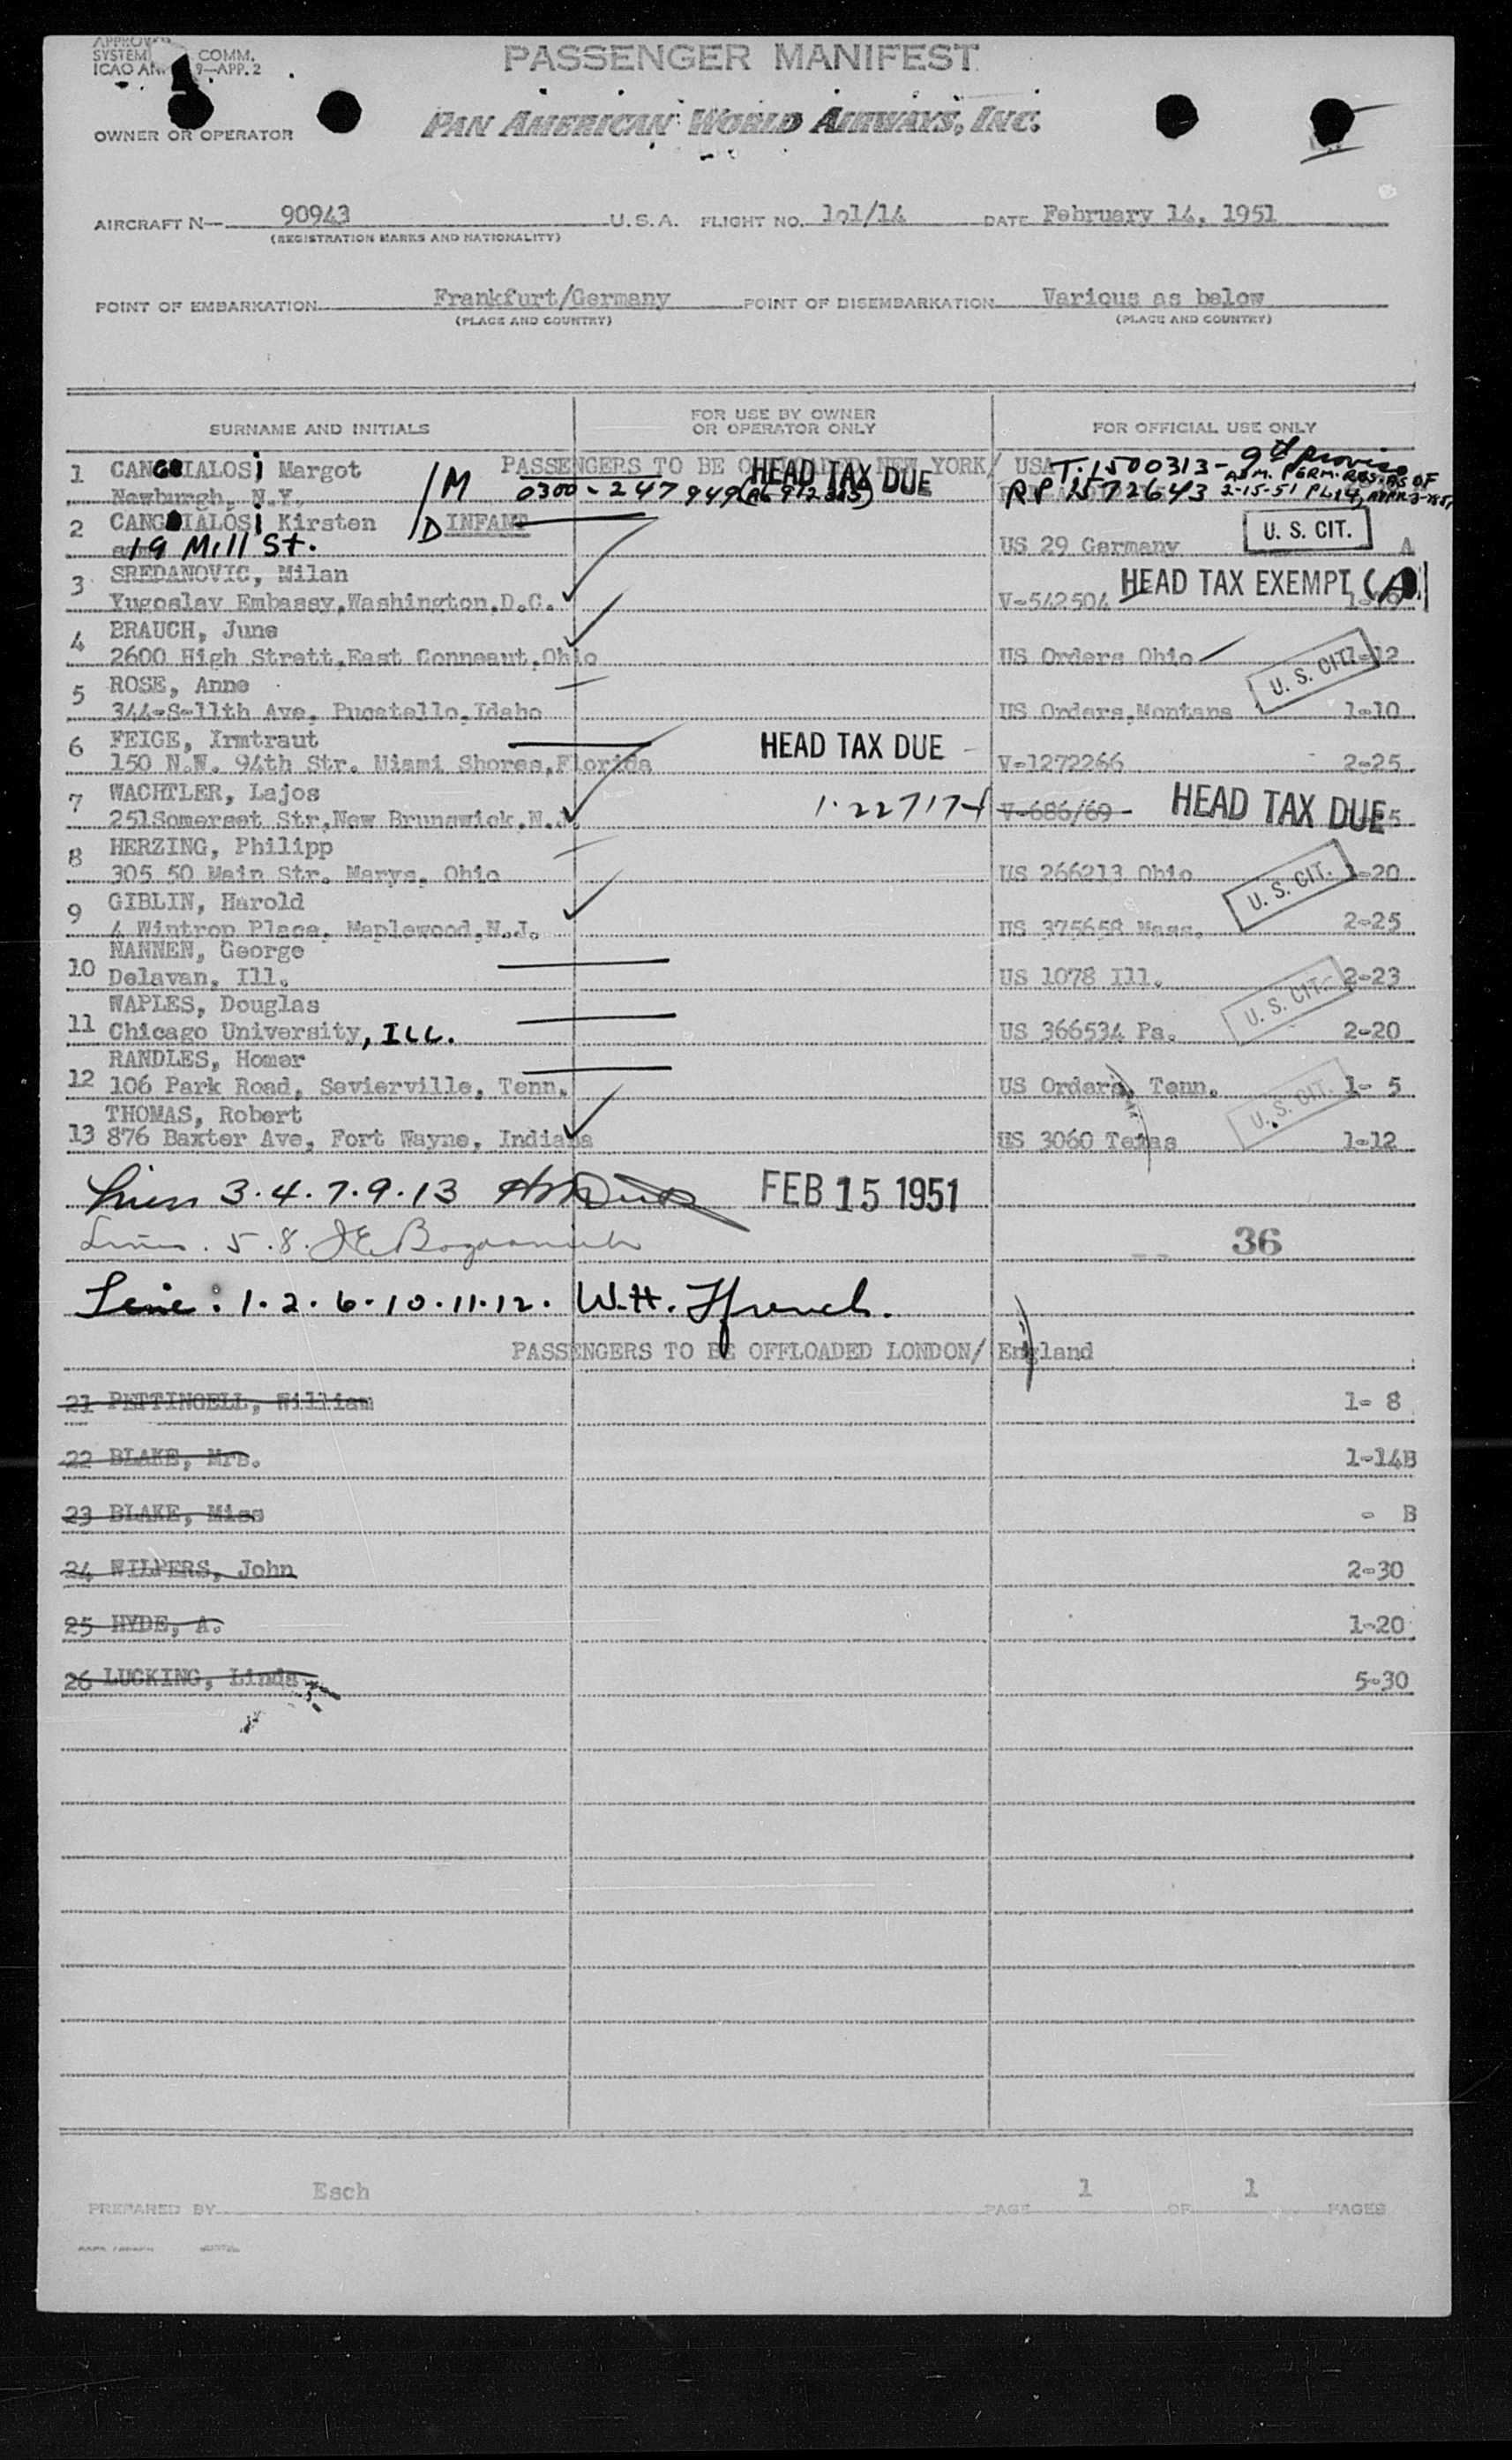 SYSTEM COMM.
ICAO AN 9—APP. 2
PASSENGER MANIFEST
OWNER OR OPERATOR
PAN AMERICAN WORLD AIRWAYS, INC.
AIRCRAFT N— 90943 U.S.A. FLIGHT NO. 1o1/14 DATE February 14, 1951
(REGISTRATION MARKS AND NATIONALITY)
POINT OF EMBARKATION Frankfurt/Germany POINT OF DISEMBARKATION Various as below
(PLACE AND COUNTRY) (PLACE AND COUNTRY)
SURNAME AND INITIALS FOR USE BY OWNER OR OPERATOR ONLY FOR OFFICIAL USE ONLY
PASSENGERS TO BE OFFLOADED NEW YORK/ USA
1 CANGIALOSi Margot /M HEAD TAX DUE T-1500313- 9th Proviso
Newburgh, N.Y. 0300-247 949 RP 1572643 ADM. PERM. RES. AS OF 2-15-51 PL 14,
2 CANGIALOSi Kirsten /D INFANT
19 Mill St. US 29 Germany U. S. CIT. A
3 SREDANOVIC, Milan
Yugoslav Embassy,Washington,D.C. V-542504 HEAD TAX EXEMPT (A)
4 BRAUCH, June
2600 High Strett,East Conneaut,Ohio US Orders Ohio U. S. CIT. 1-12
5 ROSE, Anne
344-S-11th Ave, Pucatello,Idaho US Orders,Montana 1-10
6 FEIGE, Irmtraut HEAD TAX DUE
150 N.W. 94th Str. Miami Shores,Florida V-1272266 2-25
7 WACHTLER, Lajos
251Somerset Str,New Brunswick,N.J. 1-227174 V-686/69 HEAD TAX DUE
8 HERZING, Philipp
305 50 Main Str. Marys, Ohio US 266213 Ohio U. S. CIT. 1-20
9 GIBLIN, Harold
4 Wintrop Place, Maplewood,N.J. US 375658 Mass. 2-25
NANNEN, George
10 Delavan, Ill. US 1078 Ill. U. S. CIT. 2-23
WAPLES, Douglas
11 Chicago University, ILL. US 366534 Pa. 2-20
RANDLES, Homer
12 106 Park Road, Sevierville, Tenn. US Orders, Tenn. U. S. CIT. 1- 5
THOMAS, Robert
13 876 Baxter Ave, Fort Wayne, Indiana US 3060 Texas 1-12
Lines 3.4.7.9.13 FEB 15 1951
Lines. 5.8. 36
Line: 1.2.6.10.11.12. W.H. Ffrench.
PASSENGERS TO BE OFFLOADED LONDON/ England
21 PETTINGELL, William 1- 8
22 BLAKE, Mrs. 1-14B
23 BLAKE, Miss - B
24 WILPERS, John 2-30
25 HYDE, A. 1-20
26 LUCKING, Linda 5-30
PREPARED BY Esch PAGE 1 OF 1 PAGES